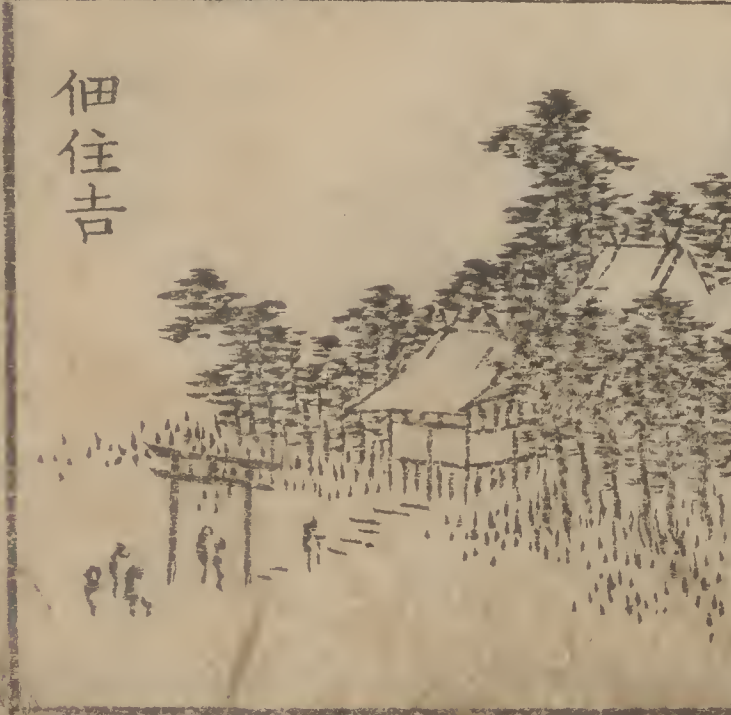 佃住吉